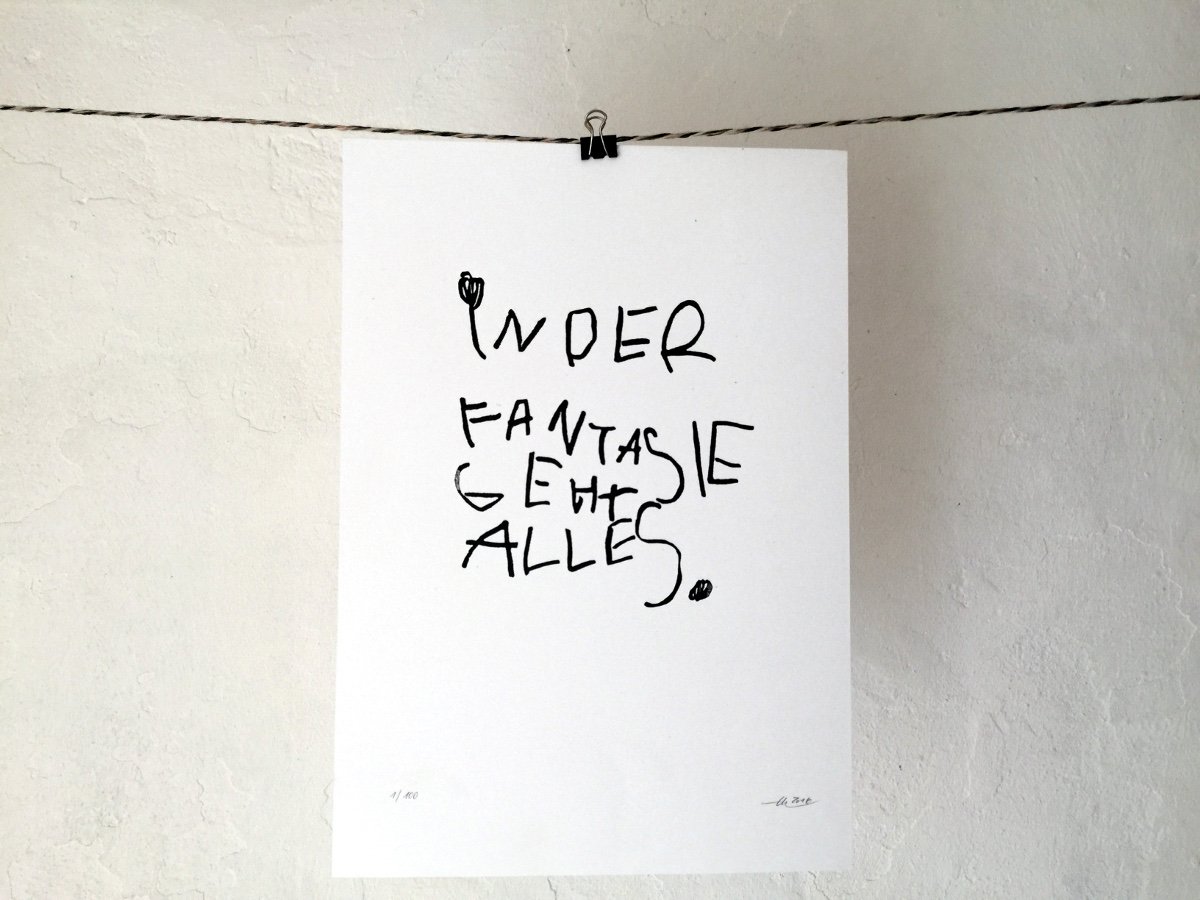 IN DER
FANTASIE
GEHT
ALLES.
1/100